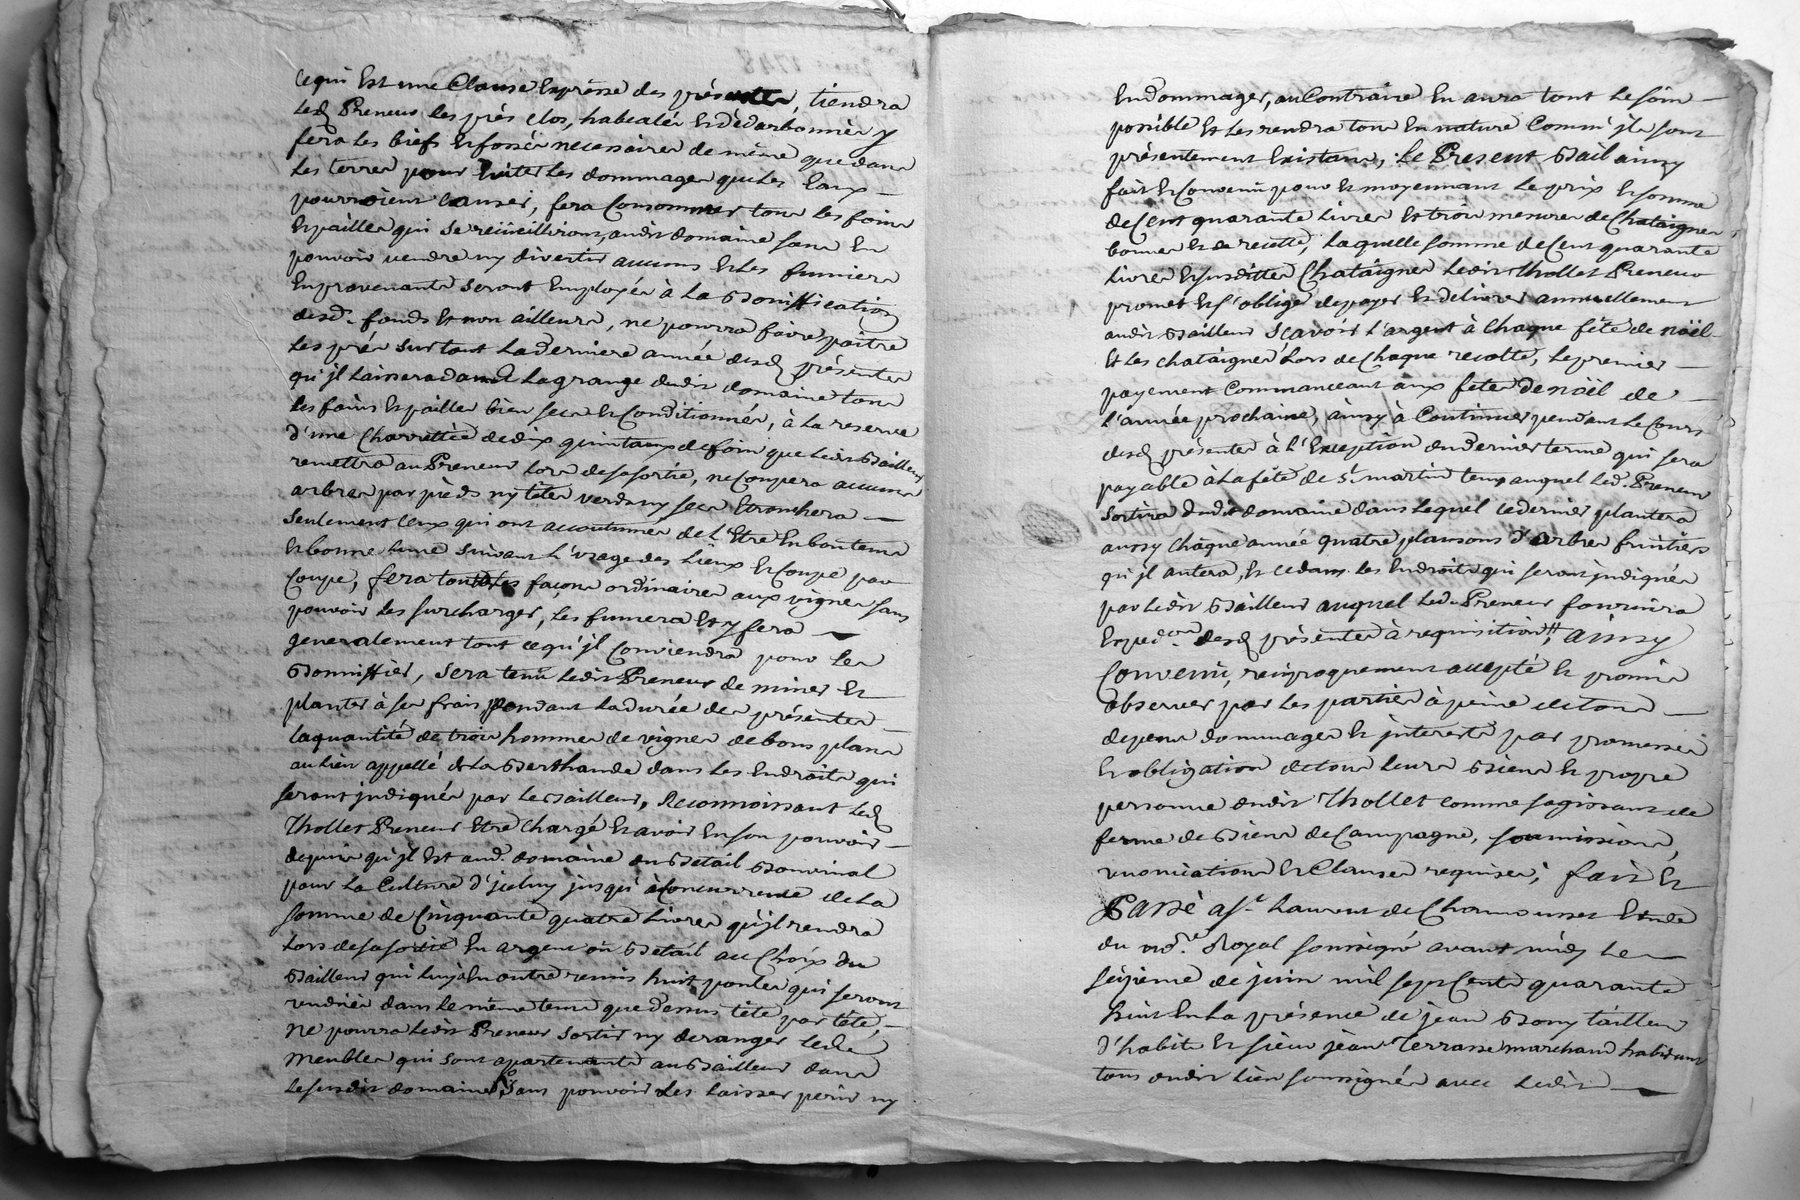 cequi Est une Clause Expresse des présentes, tiendra
Led Preneur les prés clos, habealés Et dèdarbonnés y
fera les biefs Et fossés necessaires de même que dans
Les terres pour Eviter les dommages que les Eaux
pourroient causer, fera Consommer tous les foins
Et pailles qui se reüeilliront, audit domaine sans En
pouvoir vendre ny divertir aucuns Et les fumiers
En provenants seront Employés à La Bonniffication
desd. fonds Et non ailleurs, ne pourra faire paitre
Les prés surtout La derniere année desd présentes
qu'jl Laissera dans La grange dudit domaine tous
les foins Et pailles bien secs Et Conditionnés, à La reserve
d'une Charrettée de dix quintaux de foin que Ledit Bailleur
remettra au Preneur Lors de sa sortie, ne Coupera aucuns
arbres par pieds ny têtes verds ny secs Etronchera
seulement Ceux qui ont accoutumés de L'Etre En bon tems
Et bonne Lune suivant L'vsage des Lieux Et Coupe par
Coupe, fera toutes les façons ordinaires aux vignes sans
pouvoir Les surcharger, Les fumera Et y fera
generalement tout ce qu'jl Conviendra pour les
Bonniffier, sera tenû Ledit Preneur de miner Et
planter à ses frais, pendant La durée des présentes
La quantité de trois hommes de vignes de bons plans
au Lieu appellé de La Berthande dans Les Endroits qui
seront jndiqués par Le Bailleur, Reconnoissant Led
Thollet Preneur Etre Chargé Et avoir En son pouvoir
depuis qu'jl Est aud. domaine du Betail Bouvinal
pour La Culture d'jceluy jusqu'à Concurrence de La
somme de Cinquante quatre Livres qu'jl rendra
Lors de sa sortie En argent où Betail au Choix du
Bailleur qui luy à En outre remis huit poules qui seront
rendües dans Le même tems que dessus tête par tête,
Ne pourra Ledit Preneur sortir ny deranger Les
Meubles qui sont appartenants au Bailleur dans
Le susdit domaine, sans pouvoir Les Laisser perir ny
Endommager, au Contraire En aura tout Le soin
possible Et Les rendra tous En nature Comm' jls sont
présentement Existans, Le Present Bail ainsy
fait Et Convenû pour Et moyennant Le prix Et somme
de Cent quarante Livres Et trois mesures de Chataignes
bonnes Et de recette, Laquelle somme de Cent quarante
Livres Et susdittes Chataignes Ledit Thollet Preneur
promet Et s'oblige de payer Et delivrer annuellement
audit Bailleur Scavoir L'argent à Chaque fête de noël
Et Les chataignes Lors de Chaque recolte, Le premier
payement Commanceant aux fetes de noël de
L'année prochaine, ainsy à Continuer pendant Le Cours
desd présentes à L'Exception du dernier terme qui sera
payable à La fête de St. martin tems auquel Led. Preneur
sortira dudit domaine dans Lequel ce dernier plantera
aussy Chaque année quatre plansons d'arbres fruitiers
qu'jl antera, Et ce dans Les Endroits qui seront jndiqués
par Ledit Bailleur auquel Led. Preneur fournira
Expedon desd présentes à requisition, # ainsy
Convenu, reciproquement accepté Et promis
observer par Les parties à peine de tous
depens dommages Et jnterests par promesses
Et obligation de tous Leurs Biens Et propre
personne dudit Thollet comme s'agissant de
ferme de Biens de Campagne, soumissions,
renonciations Et Clauses requises; fait Et
Passé à St. Laurent de Chamousset Etude
du nore. Royal soussigné avant midy Le
seizieme de juin mil sept Cents quarante
huit En La présence de jean Bony tailleur
d'habit Et sieur jean Terrasse marchand habitant
tous audit Lieu soussignés avec Ledit